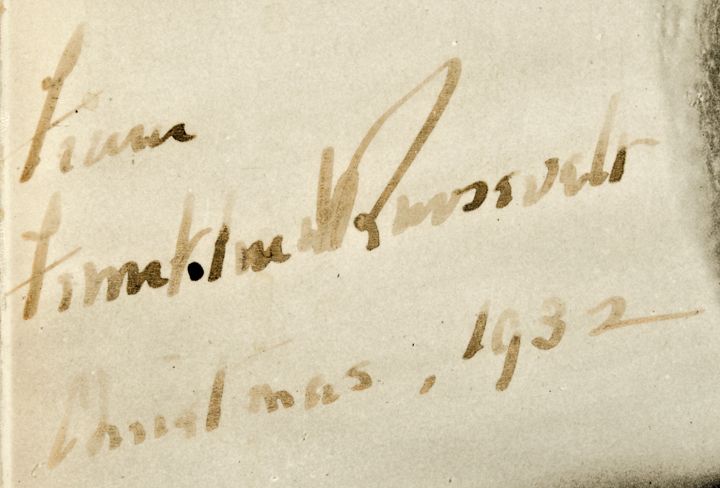 from
Franklin D Roosevelt
Christmas, 1932